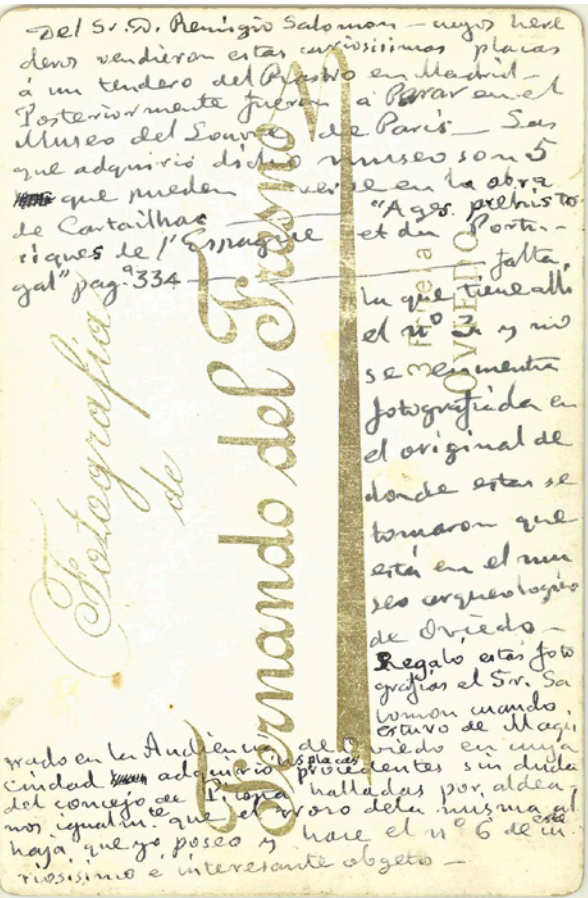 Del Sr. D. Remigio Salomon – cuyos here
deros vendieron estas curiosisimas placas
á un tendero del Rastro en Madrid –
Posteriormente fueron á parar en el
Museo del Louvre de Paris – Las
que adquirió dicho museo son 5
que pueden verse en la obra
de Cartailhac "Ages prehisto-
riques de l'Espagne et du Portu-
gal" pag.ª 334 – falta
la que tiene alli
el nº 3 y no
se encuentra
fotografiada en
el original de
donde estas se
tomaron que
está en el mu
seo arqueologico
de Oviedo –
Regaló estas foto
grafias el Sr. Sa
lomon cuando
estuvo de Magis
trado en la Audiencia de Oviedo en cuya
ciudad adquirió las placas procedentes sin duda
del concejo de halladas por aldea-
nos igualm.te que el trozo de la misma al
haja que yo poseo y hace el nº 6 de este cu-
riosisimo é interesante obgeto –
Fotografia
de
Fernando del Fresno
3 Fruela
OVIEDO